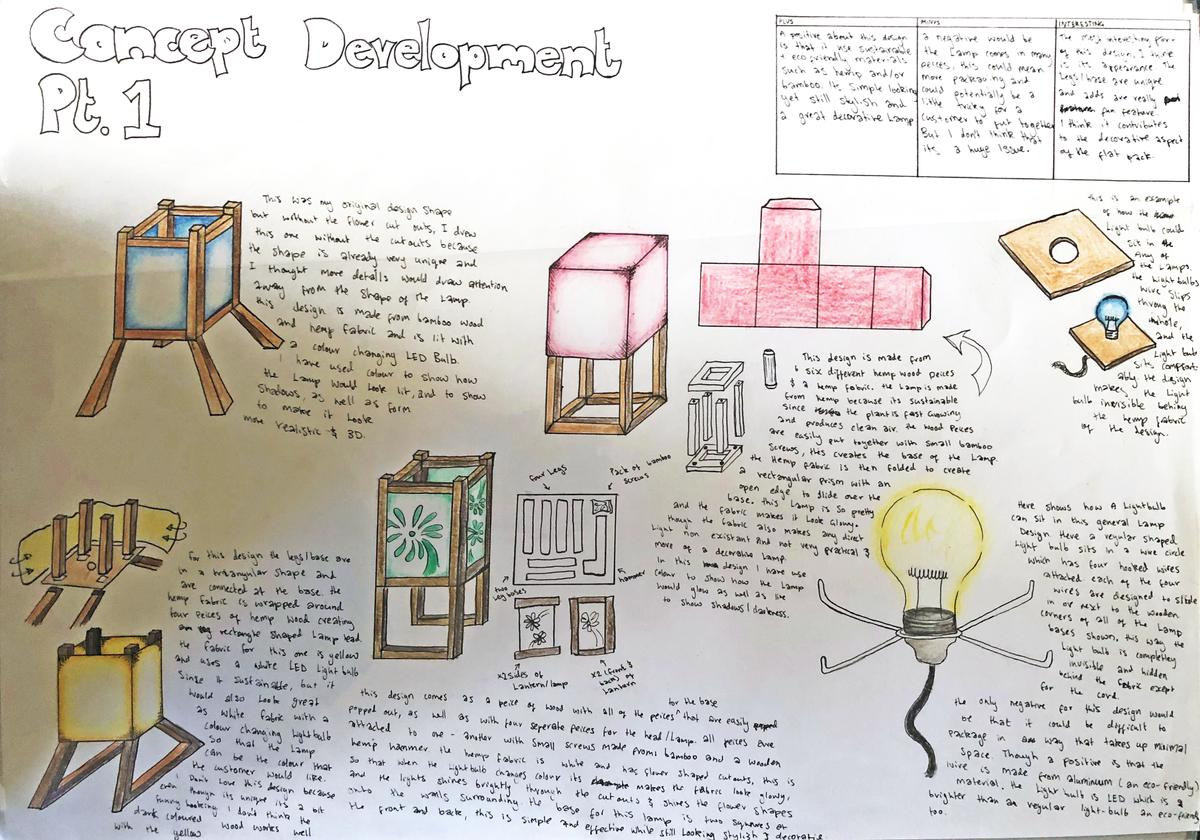 Concept Development
Pt. 1
PLUS
A positive about this design
is that it use sustainable
+ eco friendly materials
such as hemp and/or
bamboo. Its simple looking
yet still stylish and
a great decorative lamp
MINUS
a negative would be
the lamp comes in many
peices, this could mean
more packaging and
could potentially be a
little tricky for a
customer to put together
But I don't think that
its a huge issue.
INTERESTING
The most interesting part
of this design, I think
is its appearance The
legs/base are unique
and adds are really
fun feature.
I think it contributes
to the decorative aspect
of the flat pack.
This was my original design shape
but without the flower cut outs, I drew
this one without the cutouts because
the shape is already very unique and
I thought more details would draw attention
away from the shape of the lamp.
this design is made from bamboo wood
and hemp fabric and is lit with
a colour changing LED Bulb.
I have used colour to show how
the lamp would look lit, and to show
shadows, as well as form
to make it look
more realistic & 3D.
This design is made from
6 six different hemp wood peices
& a hemp fabric. the lamp is made
from hemp because its sustainable
since the plant is fast growing
and produces clean air. the wood peices
are easily put together with small bamboo
screws, this creates the base of the lamp.
the Hemp fabric is then folded to create
a rectangular prism with an
open edge to slide over the
base. this lamp is so pretty
and the fabric makes it look glowy.
though the fabric also makes any direct
light non existant and not very practical &
more of a decorative lamp.
In this design I have use
colour to show how the lamp
would glow as well as like
to show shadows/darkness.
this is an example
of how the
light bulb could
sit in the
any of
the lamps.
the lightbulbs
wire slips
throug the
whole,
and the
light bulb
sits comfort
ably the design
makes the light
bulb invisible behing
the hemp fabric
of the design.
For this design the legs/base are
in a triangular shape and
are connected at the base. the
hemp fabric is wrapped around
four peices of hemp wood creating
rectangle shaped lamp head.
the fabric for this one is yellow
and uses a white LED lightbulb
since it sustainable, but it
would also look great
as white fabric with a
colour changing lightbulb
so that the lamp
can be the colour that
the customer would like.
I don't love this design because
even though its unique its a bit
funny looking. I don't think the
dark coloured wood works well
with the yellow
four legs
Pack of bamboo
screws
two
leg bases
hammer
x2 sides of
lantern/lamp
x2 (front &
back) of
lantern
this design comes as a peice of wood with all of the peices for the base that are easily
popped out, as well as with four seperate peices for the head/lamp. all peices are
attached to one-another with small screws made from bamboo and a wooden
hemp hammer. the hemp fabric is white and has flower shaped cutouts, this is
so that when the lightbulb changes colour its makes the fabric look glowy,
and the lights shines brightly through the cutouts & shines the flower shapes
onto the walls surrounding the base for this lamp is two squares at
the front and back, this is simple and effective while still looking stylish & decorative.
Here shows how A lightbulb
can sit in this general lamp
Design. Here a regular shaped
light bulb sits in a wire circle
which has four hooked wires
attached each of the four
wires are designed to slide
in or next to the wooden
corners of all of the lamp
bases shown, this way the
light bulb is completley
invisible and hidden
behind the fabric except
for the cord.
the only negative for this design would
be that it could be difficult to
package in a way that takes up minimal
space. Though a positive is that the
wire is made from aluminum (an eco-friendly
material. the light bulb is LED which is a
brighter than an regular light-bulb an eco-friendly
too.